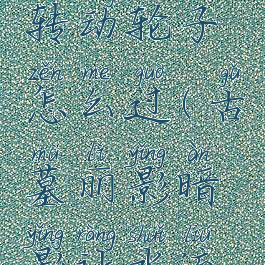 转动轮子
zěn me guò gǔ
怎么过(古
mù lì yǐng àn
墓丽影暗
yǐng róng shuǐ liú
影